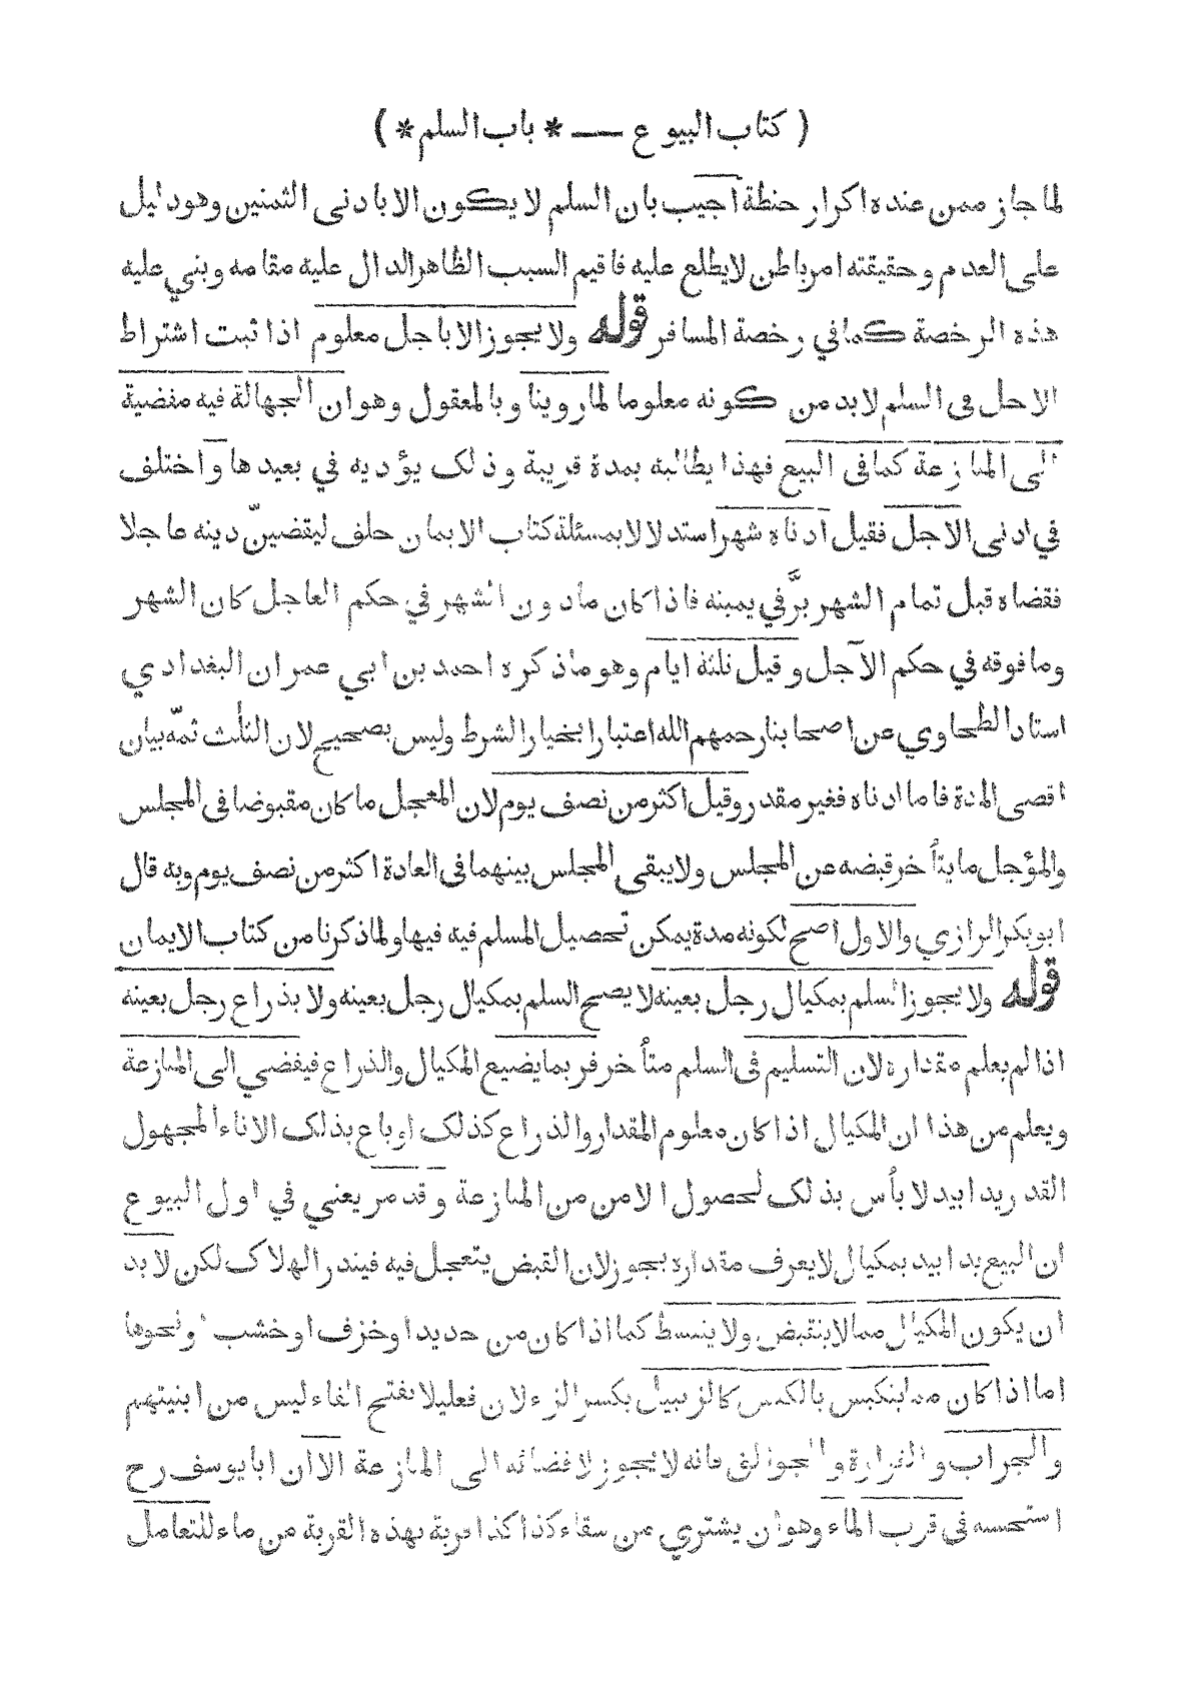 ( كتاب البيوع — * باب السلم * )
لما جاز ممن عنده اكرار حنطة اجيب بان السلم لا يكون الا بادنى الثمنين وهو دليل
على العدم وحقيقته امر باطن لا يطلع عليه فاقيم السبب الظاهر الدال عليه مقامه وبني عليه
هذه الرخصة كما في رخصة المسافر قوله ولا يجوز الا باجل معلوم اذا ثبت اشتراط
الاجل فى السلم لا بد من كونه معلوما لما روينا وبالمعقول وهو ان الجهالة فيه مفضية
الى المنازعة كما فى البيع فهذا يطالبه بمدة قريبة وذلك يؤديه في بعيدها واختلف
في ادنى الاجل فقيل ادناه شهر استدلالا بمسئلة كتاب الايمان حلف ليقضينّ دينه عاجلا
فقضاه قبل تمام الشهر برَّ في يمينه فاذا كان مادون الشهر في حكم العاجل كان الشهر
وما فوقه في حكم الآجل وقيل ثلثة ايام وهو ماذكره احمد بن ابي عمران البغدادي
استاد الطحاوي عن اصحابنا رحمهم الله اعتبارا بخيار الشرط وليس بصحيح لان الثلث ثمّه بيان
اقصى المدة فاما ادناه فغير مقدر وقيل اكثر من نصف يوم لان المعجل ما كان مقبوضا فى المجلس
والمؤجل ما يتأخر قبضه عن المجلس ولا يبقى المجلس بينهما فى العادة اكثر من نصف يوم وبه قال
ابوبكر الرازي والاول اصح لكونه مدة يمكن تحصيل المسلم فيه فيها ولما ذكرنا من كتاب الايمان
قوله ولا يجوز السلم بمكيال رجل بعينه لا يصح السلم بمكيال رجل بعينه ولا بذراع رجل بعينه
اذا لم يعلم مقداره لان التسليم فى السلم متأخر فربما يضيع المكيال والذراع فيفضي الى المنازعة
ويعلم من هذا ان المكيال اذا كان معلوم المقدار والذراع كذلك او باع بذلك الاناء المجهول
القدر يدا بيد لا بأس بذلك لحصول الامن من المنازعة وقد مر يعني في اول البيوع
ان البيع يدا بيد بمكيال لا يعرف مقداره يجوز لان القبض يتعجل فيه فيندر الهلاك لكن لا بد
ان يكون المكيال مما لا ينقبض ولا ينبسط كما اذا كان من حديد او خزف او خشب او نحوها
اما اذا كان مما ينكبس بالكبس كالزنبيل بكسر الزاء لان فعليلا بفتح الفاء ليس من ابنيتهم
والجراب والغرارة والجوالق فانه لا يجوز لافضائه الى المنازعة الا ان ابا يوسف رح
استحسنه فى قرب الماء وهو ان يشتري من سقاء كذا كذا قربة بهذه القربة من ماء للتعامل